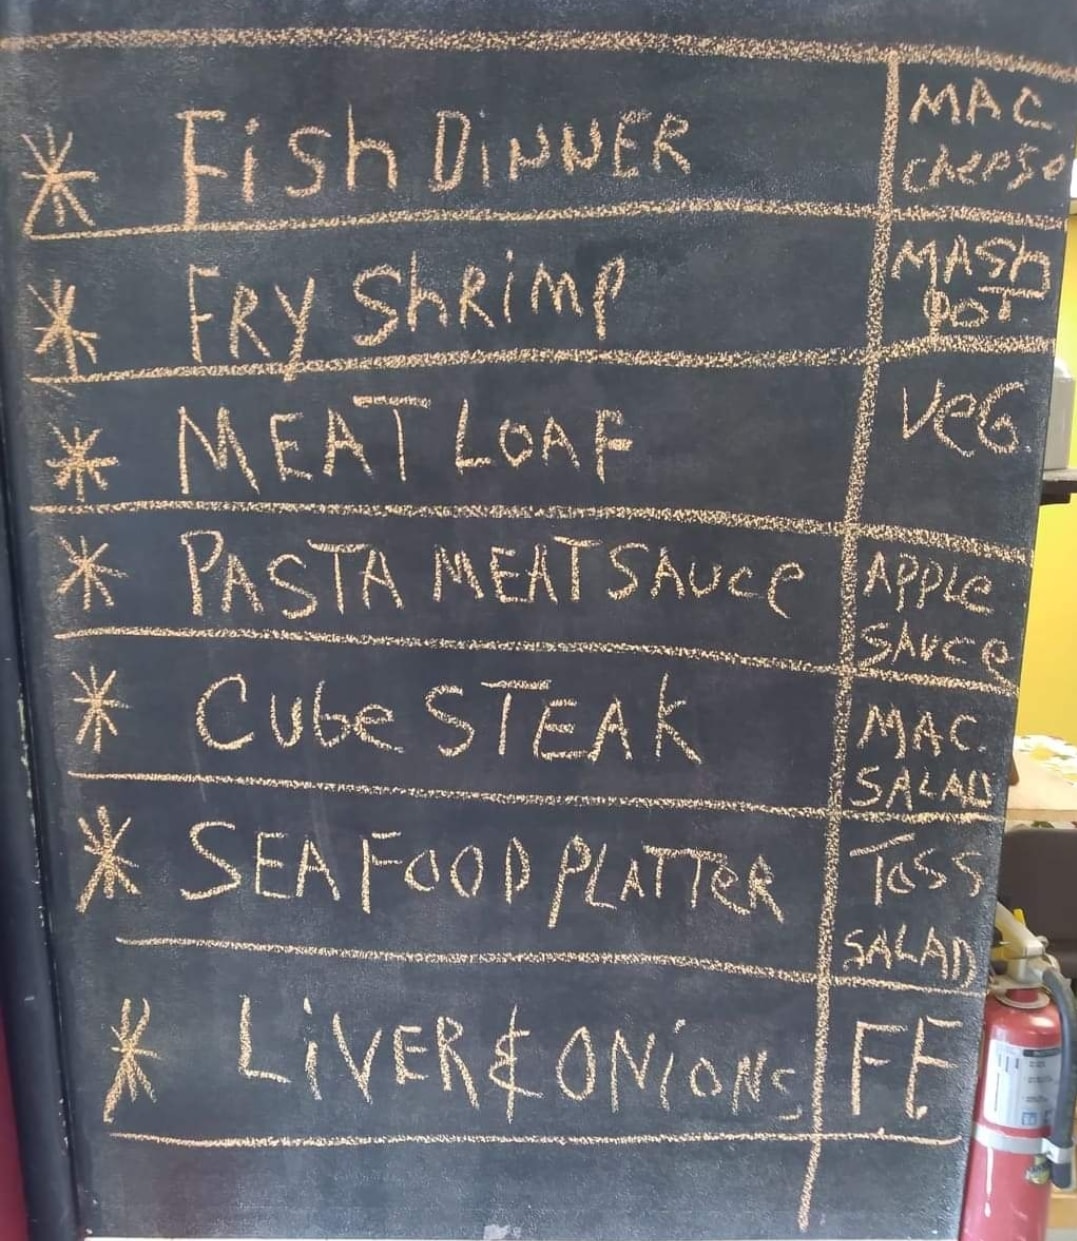 Fish DINNER
MAC
cheese
FRY ShRimp
MASh
POT.
MEAT LOAF
VeG
PASTA MEAT SAUce
APPLe
SAUce
Cube STEAK
MAC.
SALAD
SEAFOOD PLATTeR
ToSS
SALAD
LiVER & ONiONS
FF